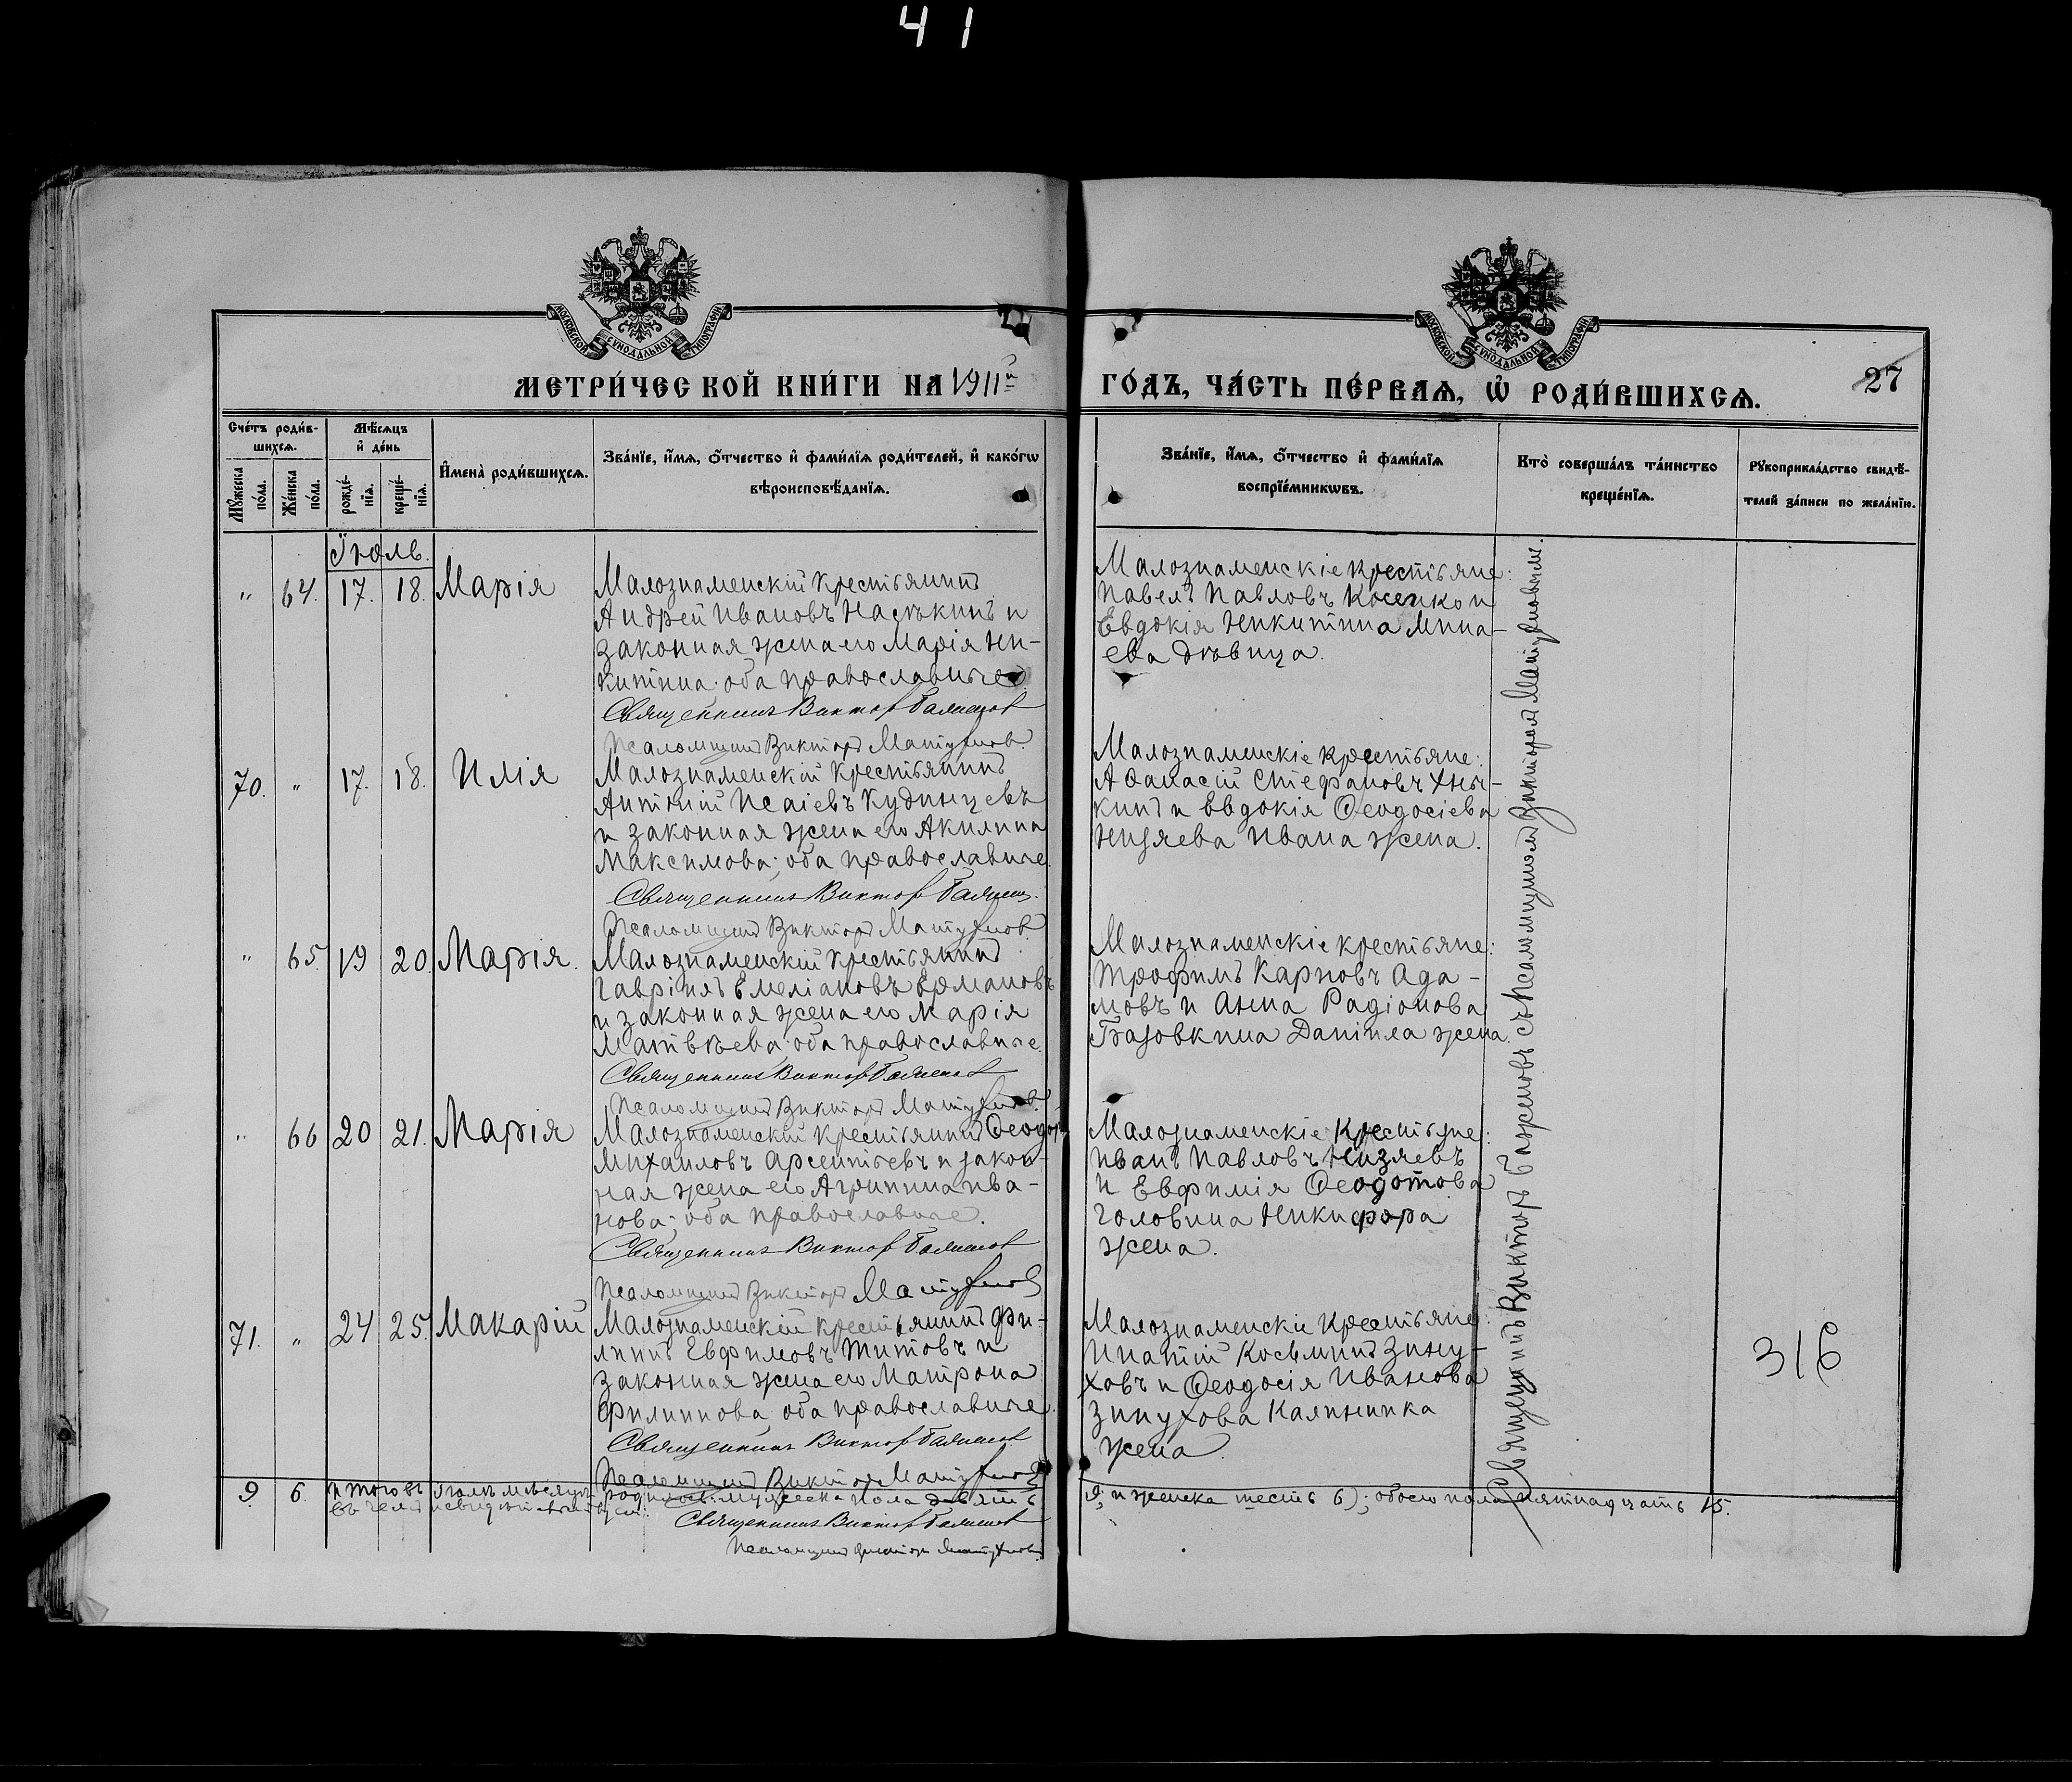 41
МОСКОВСКОЙ СѴНОДАЛЬНОЙ ТИПОГРАФІИ
МОСКОВСКОЙ СѴНОДАЛЬНОЙ ТИПОГРАФІИ
МЕТРИ́ЧЕСКОЙ КНИ́ГИ НА 1911й
ГО́ДЪ, ЧА́СТЬ ПЕ́РВАѦ, Ѡ҆ РОДИ́ВШИХСѦ.
27
Сче́тъ роди́в-
шихсѧ.
Мꙋ́жеска по́ла.
Же́нска по́ла.
Мѣ́сѧцъ
и҆ де́нь
рожде́-
нїѧ.
креще́-
нїѧ.
И҆мена̀ роди́вшихсѧ.
Зва́нїе, и҆́мѧ, ѻ҆́тчество и҆ фами́лїѧ роди́телей, и҆ како́гѡ
вѣроисповѣ́данїѧ.
Зва́нїе, и҆́мѧ, ѻ҆́тчество и҆ фами́лїѧ
воспрїе́мникѡвъ.
Кто̀ соверша́лъ та́инство
креще́нїѧ.
Рꙋкоприкла́дство свидѣ́-
телей за́писи по жела́нїю.
Іюль.
„ 64. 17. 18. Марія
Малознаменскій крестьянинъ
Андрей Ивановъ Насѣкинъ и
законная жена его Марія Ни-
китина оба православные
Священникъ Виктор Бажанов
Псаломщикъ Викторъ Матуфнов
Малознаменскіе крестьяне:
Павелъ Павловъ Косенко и
Евдокія Никитина Мина-
ева дѣвица.
70. „ 17. 18. Илія
Малознаменскій крестьянинъ
Антоній Исаіевъ Кудинцевъ
и законная жена его Акилина
Максимова; оба православные.
Священникъ Виктор
Псаломщикъ Викторъ
Малознаменскіе крестьяне:
Афанасій Стефановъ
кинъ и Евдокія Ѳеодосіева
Низяева Ивана жена.
„ 65. 19 20. Марія.
Малознаменскій крестьянинъ
Гавріилъ Емеліановъ Ермаковъ
и законная жена его Марія
Матвѣева оба православные.
Священникъ Виктор
Псаломщикъ Викторъ
Малознаменскіе крестьяне:
Трофимъ Карповъ Ада-
мовъ и Анна Радіонова
Базовкина Даніила жена.
„ 66 20 21. Марія
Малознаменскій крестьянинъ Ѳеодоръ
Михаиловъ Арсентьевъ и закон-
ная жена его Агрипина Ива-
нова; оба православные.
Священникъ Виктор
Псаломщикъ Викторъ
Малознаменскіе крестьяне:
Иванъ Павловъ Низяевъ
и Евфимія Ѳеодотова
Головина Никифора
жена.
71. „ 24 25. Макарій
Малознаменскій крестьянинъ Фи-
липпъ Евфимовъ Титовъ и
законная жена его Матрона
Филиппова оба православные.
Священникъ Виктор
Псаломщикъ Викторъ
Малознаменскіе крестьяне:
Ипатій Косьминъ Зину-
ховъ и Ѳеодосія Иванова
Зинухова Калинника
жена
316
Священникъ Викторъ съ Псаломщикомъ Викторомъ
9 6 Итого въ Іюлѣ мѣсяцѣ мужеска пола девять
9; и женска шесть 6); обоего пола пятнадцать 15.
Священникъ Виктор
Псаломщикъ Викторъ